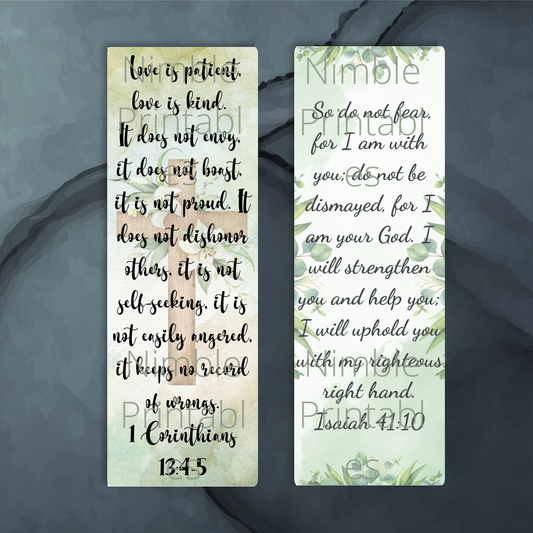 Love is patient,
love is kind.
It does not envy,
it does not boast,
it is not proud. It
does not dishonor
others, it is not
self-seeking, it is
not easily angered,
it keeps no record
of wrongs.
1 Corinthians
13:4-5
Nimble
Printabl
es
Nimble
Printabl
es
So do not fear,
for I am with
you; do not be
dismayed, for I
am your God. I
will strengthen
you and help you;
I will uphold you
with my righteous
right hand.
Isaiah 41:10
Nimble
Printabl
es
Nimble
Printabl
es